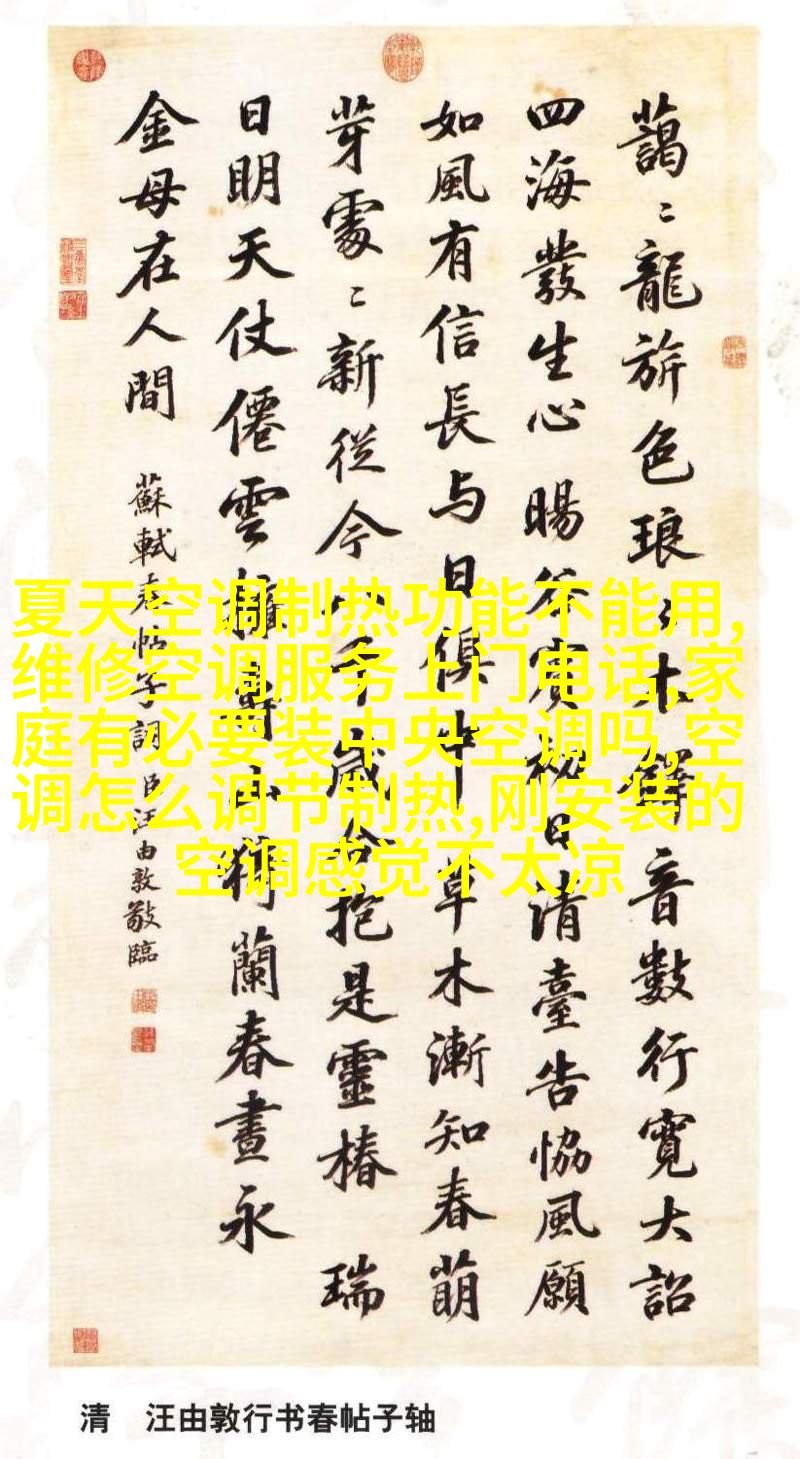 藹〻龍旂色琅〻木鐸音數行寬大詔
四海發生心 暘谷賓初日清臺告協風願
如風有信長与日俱中 草木漸知春萌
芽處〻新從今八千歲合抱是靈椿 瑞
日明天仗僊雲擁壽山猗蘭春晝永
金母在人間
蘇軾春帖子詞 臣汪由敦敬臨
夏天空调制热功能不能用,
维修空调服务上门电话,家
庭有必要装中央空调吗,空
调怎么调节制热,刚安装的
空调感觉不太凉
清 汪由敦行书春帖子轴